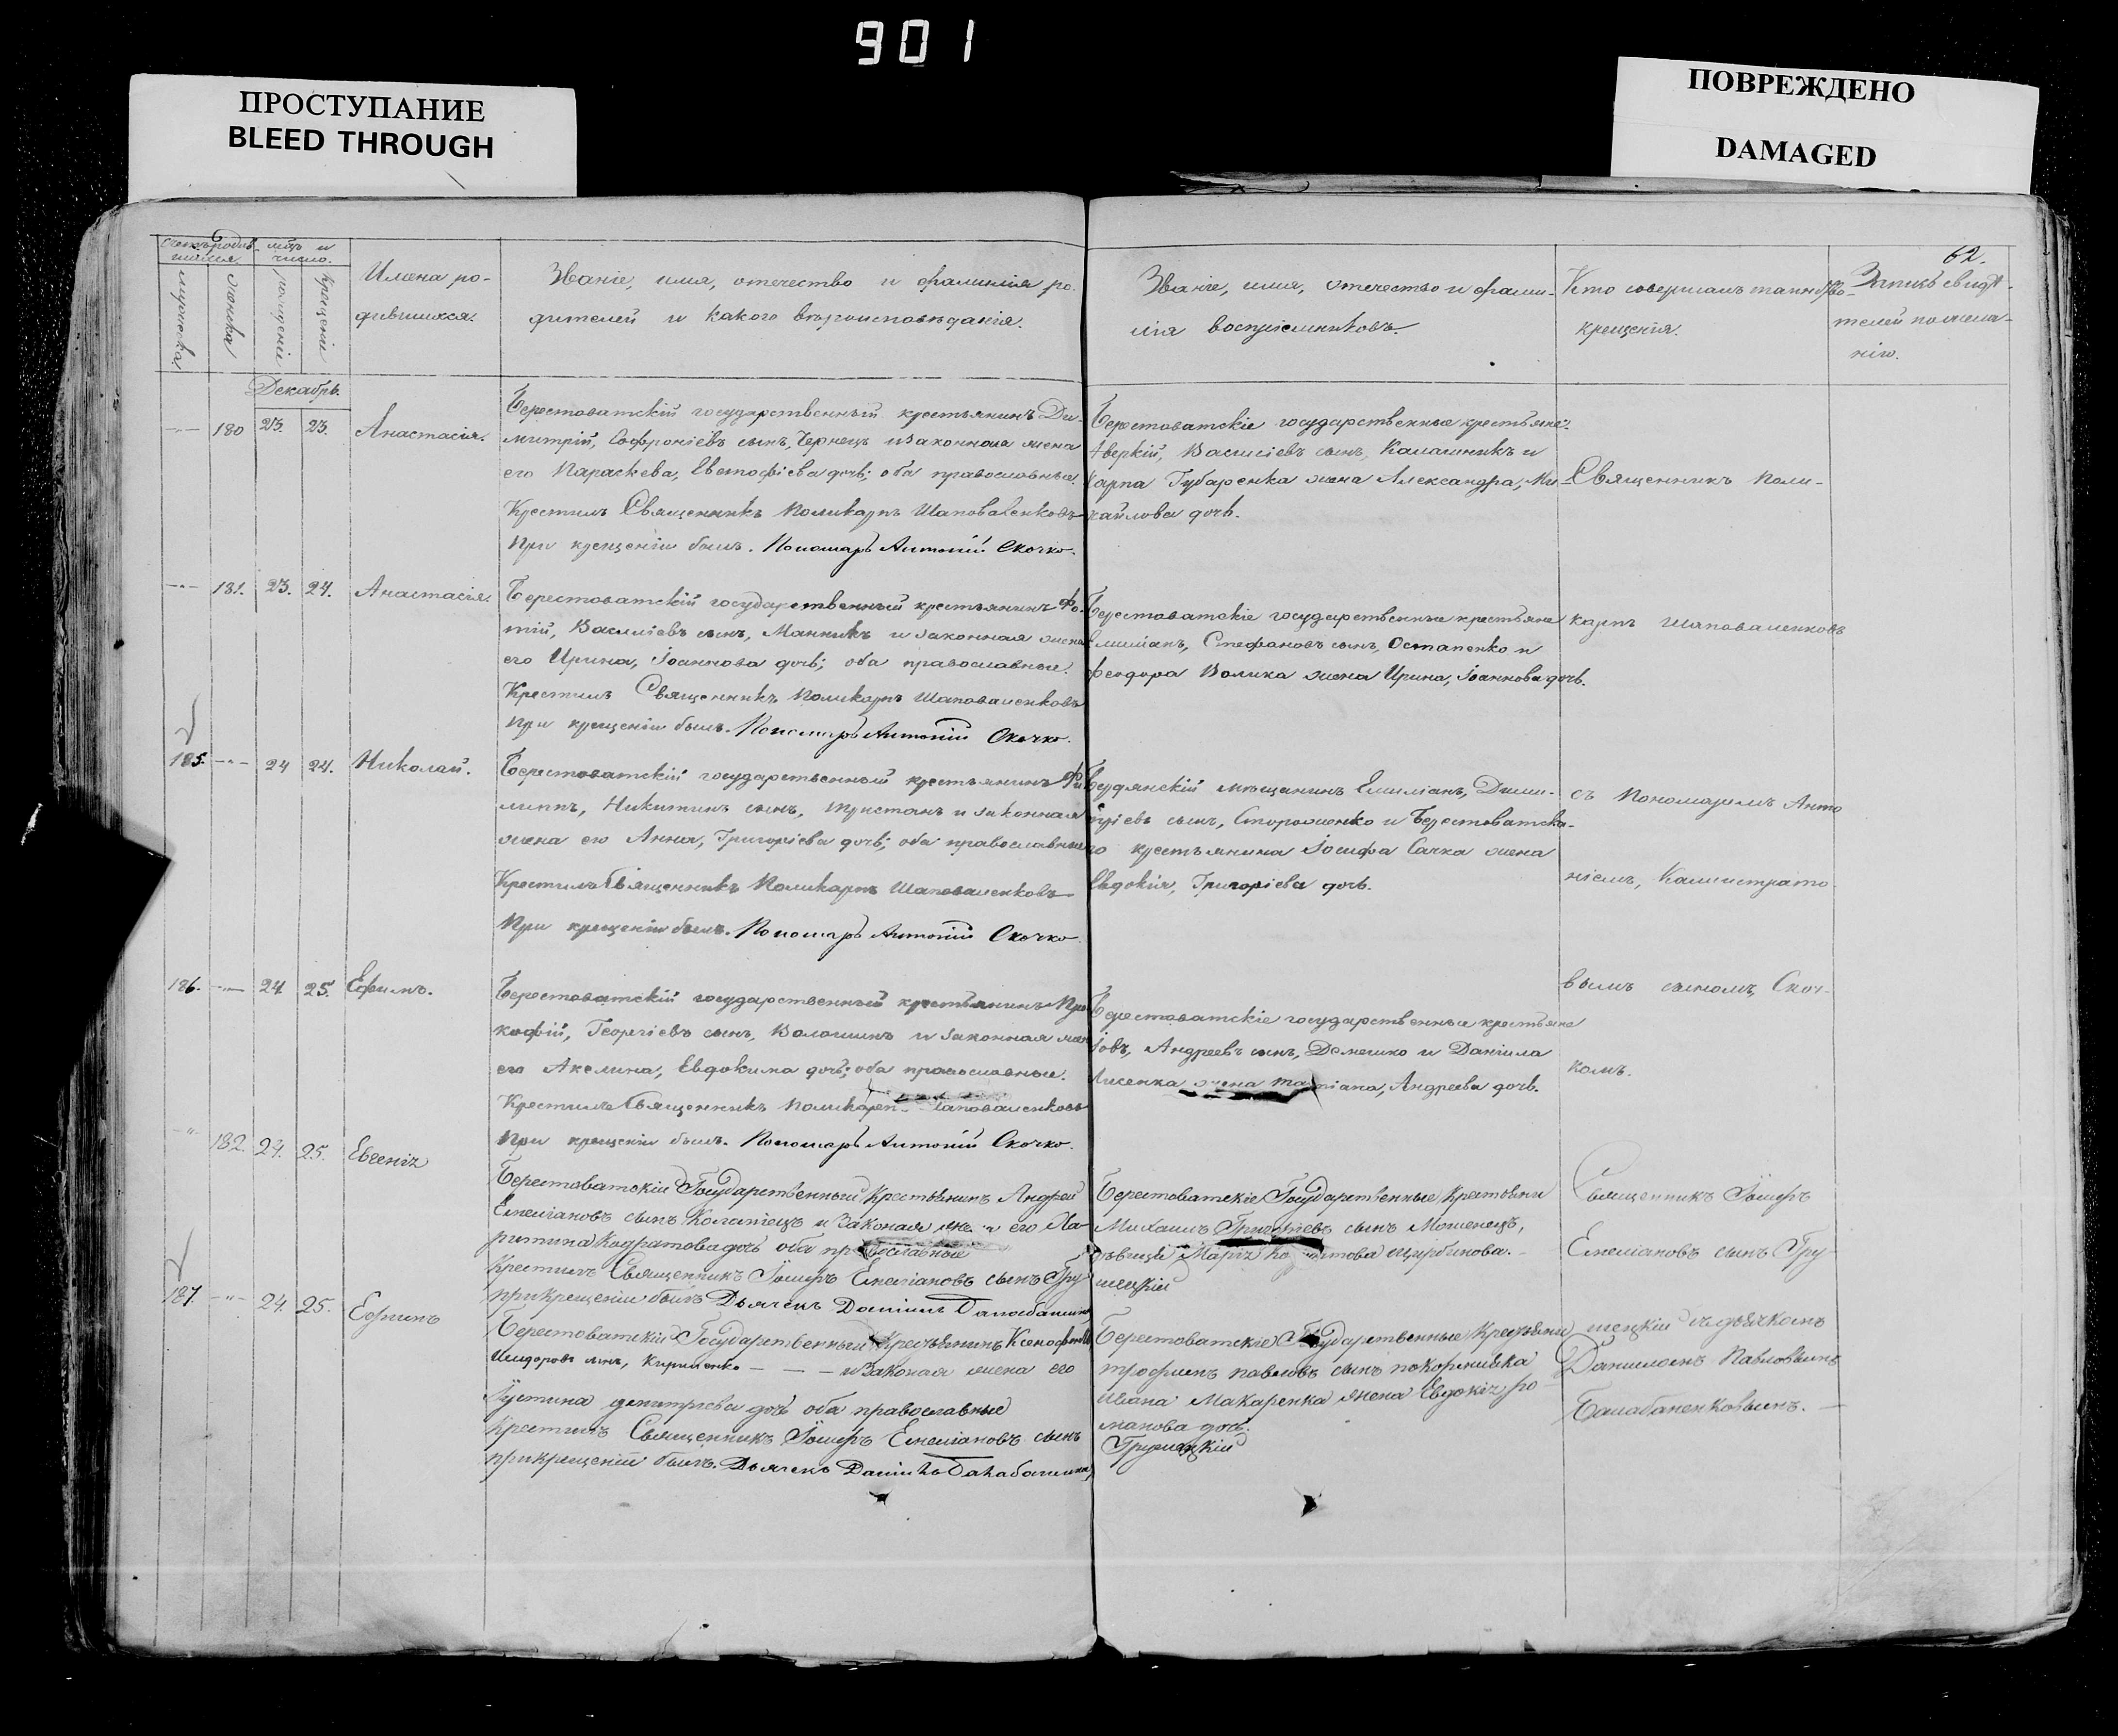 901
ПРОСТУПАНИЕ
BLEED THROUGH
ПОВРЕЖДЕНО
DAMAGED
62.
Счетъ родив-
шихся.
мужеска
женска
мѣс. и
число.
рожденія
крещенія
Имена ро-
дившихся.
Званіе, имя, отечество и фамилія ро-
дителей и какого вѣроисповѣданія.
Званіе, имя, отечество и фами-
лія воспріемниковъ
Кто совершалъ таинство
крещенія.
свидѣ-
телей по желанію
нію.
Декабрь.
180 23. 23. Анастасія.
Берестоватскій государственный крестьянинъ Ди-
митрій, Софроніевъ сынъ, Чернецъ и законная жена
его Параскева, Евстафіева дочь; оба православные.
Крестилъ Священникъ Поликарпъ Шаповаленковъ
При крещеніи былъ. Пономарь Антоній Скочко.
Берестоватскіе государственные крестьяне:
Аверкій, Василіевъ сынъ, Калашникъ и
Карпа Губаренка жена Александра, Ми-
хайлова дочь.
Священникъ Поли-
181. 23. 24. Анастасія.
Берестоватскій государственный крестьянинъ Фо-
тій, Василіевъ сынъ, Манникъ и законная жена
его Ирина, Іоаннова дочь; оба православные.
Крестилъ Священникъ Поликарпъ Шаповаленковъ
При крещеніи былъ. Пономарь Антоній Скочко.
Берестоватскіе государственные крестьяне
Емиліанъ, Стефановъ сынъ, Остапенко и
Феодора Волика жена Ирина, Іоаннова дочь.
карпъ Шаповаленковъ
185. 24 24. Николай.
Берестоватскій государственный крестьянинъ Фи-
липпъ, Никитинъ сынъ, Тристанъ и законная
жена его Анна, Григоріева дочь; оба православные
Крестилъ Священникъ Поликарпъ Шаповаленковъ
При крещеніи былъ. Пономарь Антоній Скочко
мѣщанинъ Емиліанъ, Дими-
тріевъ сынъ, Стороженко и Берестоватска-
го крестьянина Іосифа Сачка жена
Евдокія, Григоріева дочь.
съ Пономаремъ Анто
ніемъ, Каллистрато-
186. 24 25. Ефимъ.
Берестоватскій государственный крестьянинъ Про
кофій, Георгіевъ сынъ, Волошинъ и законная жена
его Акелина, Евдокима дочь; оба православные.
Крестилъ Священникъ Поликарп Шаповаленковъ
При крещеніи былъ. Пономарь Антоній Скочко.
Берестоватскіе государственные крестьяне
Іовъ, Андреевъ сынъ, Демешко и Даніила
Лисенка жена Татіана, Андреева дочь.
вымъ сыномъ, Скоч-
комъ.
182. 24. 25. Евгенія
Берестоватскій Государственный Крестьянинъ Андрей
Емеліановъ сынъ и Законая жена его Ха-
ритина Кодратова дочь оба православные
Крестилъ Священникъ Іосифъ Емеліановъ сынъ Гру
шецкій
при крещеніи былъ Дьячекъ Даніилъ
Берестоватскіе Государственные Крестьяни
Михаилъ Григоріевъ сынъ Мошенецъ,
дѣвица Марія Щербинова.
Священникъ Іосифъ
Емеліановъ сынъ Гру
187. 24. 25. Ефимъ
Берестоватскій Государственный Крестьянинъ Ксенофонтъ
Исидоровъ сынъ, Кириченко — — — и Законая жена его
Іустина димитріева дочь оба православные
Крестилъ Священникъ Іосифъ Емеліановъ сынъ
Грушецкій
при крещеніи былъ. Дьячекъ Даніилъ
Берестоватскіе Государственные Крестьяни
трофимъ павловъ сынъ
ивана Макаренка жена Евдокія, ро-
манова дочь.
шецкій съ дьячкомъ
Даниломъ Павловымъ
Балабаненковымъ.